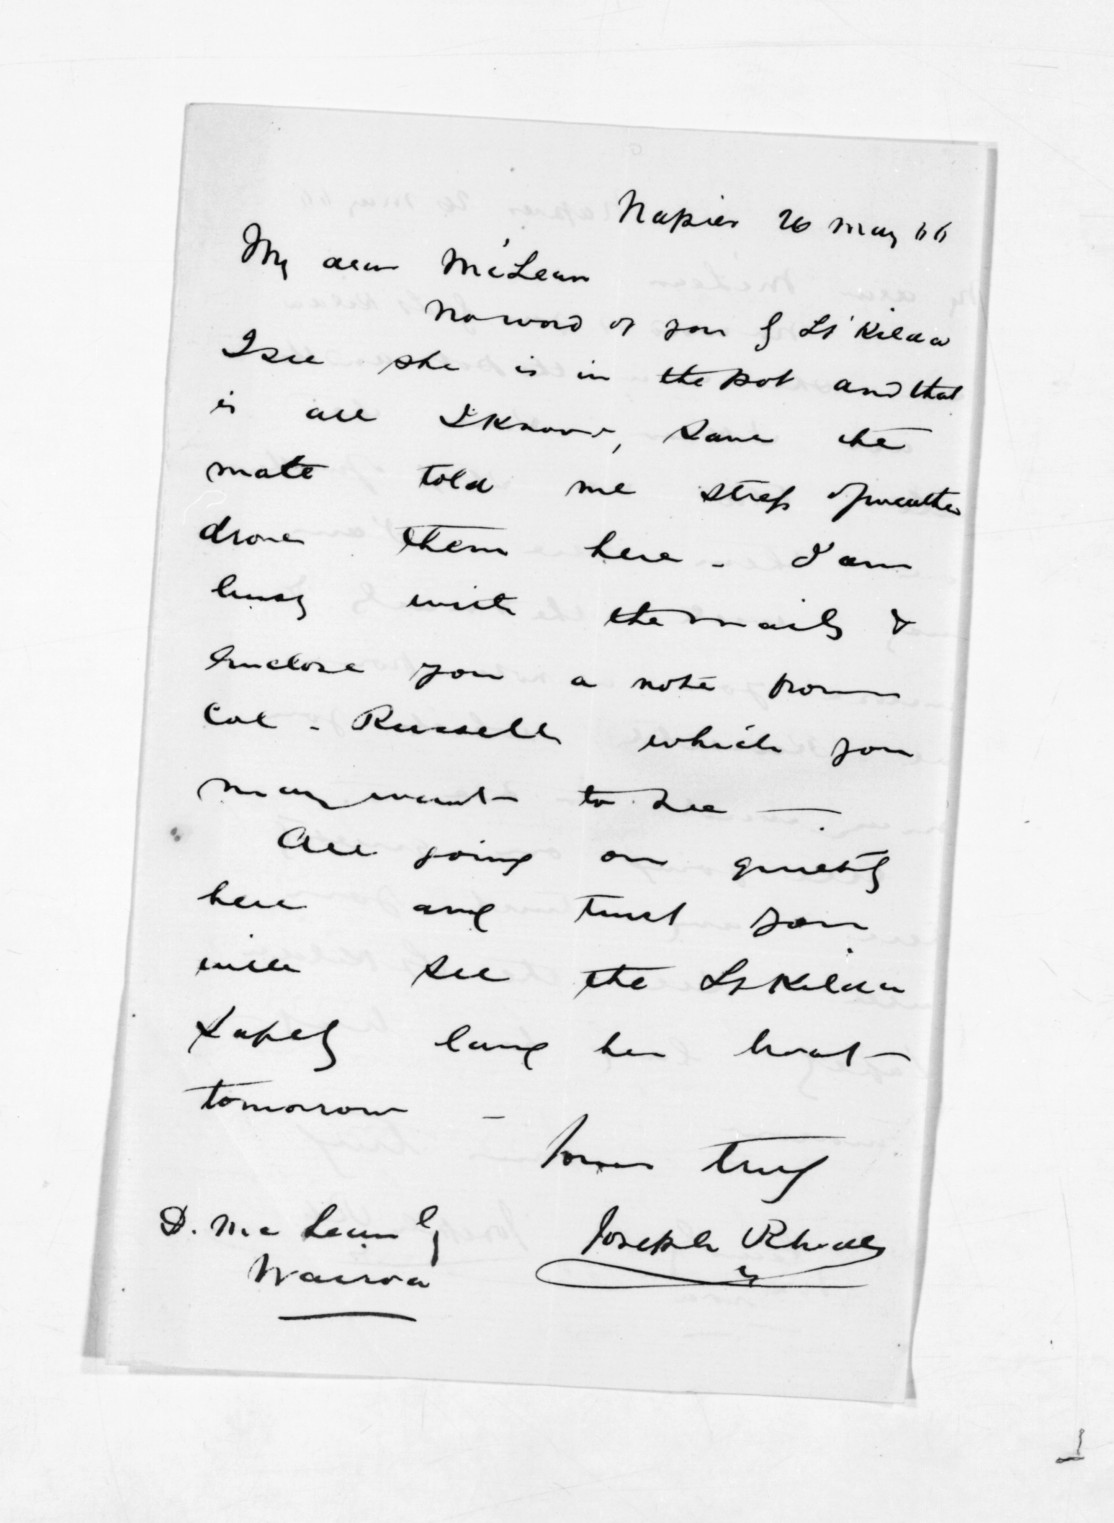 Napier 26 May 66
My dear McLean
No word of you by St Kilda
I see she is in the port and that
is all I know, save the
mate told me stress of weather
drove them here - I am
busy with the mails &
enclose you a note from
Col - Russell which you
may want to see —.
All going on quietly
here and trust you
will see the St Kilda
safely land her boat
tomorrow -
Yours truly
Joseph Rhodes
D. McLean Eq
Wairoa